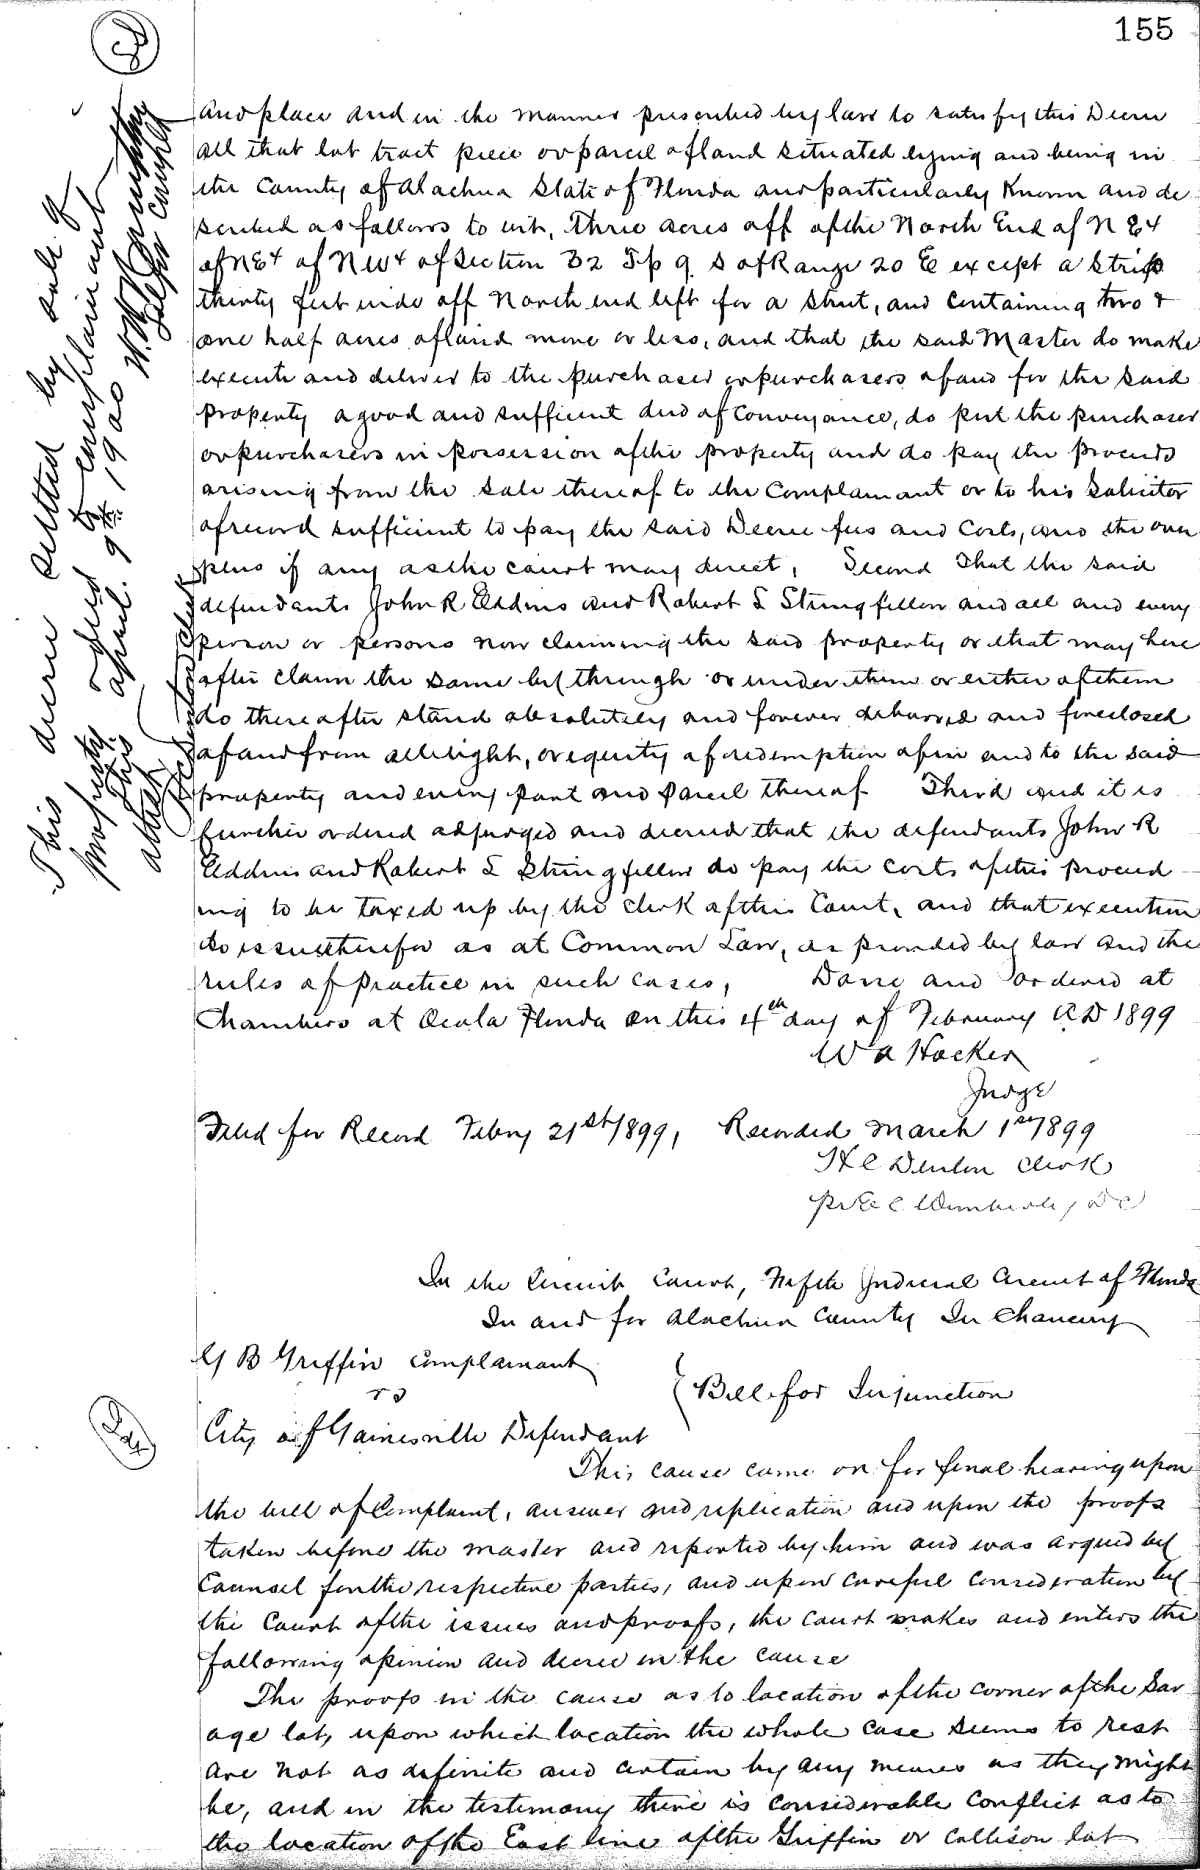 155
and place and in the manner prescribed by law to satisfy this Decree
all that lot tract piece or parcel of land situated lying and being in
the County of Alachua State of Florida and particularly Known and de
scribed as follows to wit, Three acres off of the North End of N E4
of NE4 of NW4 of Section 32 Tp 9 S of Range 20 E except a strip
thirty feet wide off North end left for a street, and containing two &
one half acres of land more or less, and that the said Master do make
execute and deliver to the purchaser or purchasers of and for the said
property a good and sufficient deed of Conveyance, do put the purchaser
or purchasers in possession of the property and do pay the proceeds
arising from the sale thereof to the Complainant or to his Solicitor
of record sufficient to pay the said Decree fees and Costs, and the over
plus if any as the court may direct, Second That the said
defendants John R Eddins and Robert L Stringfellow and all and every
person or persons now claiming the said property or that may here
after claim the same by through or under them or either of them
do thereafter stand absolutely and forever debarred and foreclosed
of and from all right, or equity of redemption of in and to the said
property and every part and parcel thereof Third and it is
further ordered adjudged and decreed that the defendants John R
Eddins and Robert L Stringfellow do pay the costs of this proceed
ing to be taxed up by the clerk of this Court, and that execution
do issue therefor as at Common Law, as provided by law and the
rules of practice in such cases, Done and ordered at
Chambers at Ocala Florida on this 4th day of February AD 1899
W A Hocker
Judge
Filed for Record Febry 21st/1899, Recorded March 1st/1899
H C Denton Clerk
pr E C Wimberly, DC
This decree settled by sale of
property ordered to complainant
this April. 9th 1900
attest
H C Denton clerk
In the Circuit Court, Fifth Judicial Circuit of Florida
In and for Alachua County In Chancery
G B Griffin Complainant
vs
Bill for Injunction
City of Gainesville Defendant
This cause came on for final hearing upon
the bill of Complaint, answer and replication and upon the proofs
taken before the master and reported by him and was argued by
Counsel for the respective parties, and upon careful consideration by
the Court of the issues and proofs, the Court makes and enters the
following opinion and decree in the cause
The proofs in the cause as to location of the corner of the Sav
age lot, upon which location the whole case seems to rest
are not as definite and certain by any means as they might
be, and in the testimony there is considerable conflict as to
the location of the East line of the Griffin or Collison lot